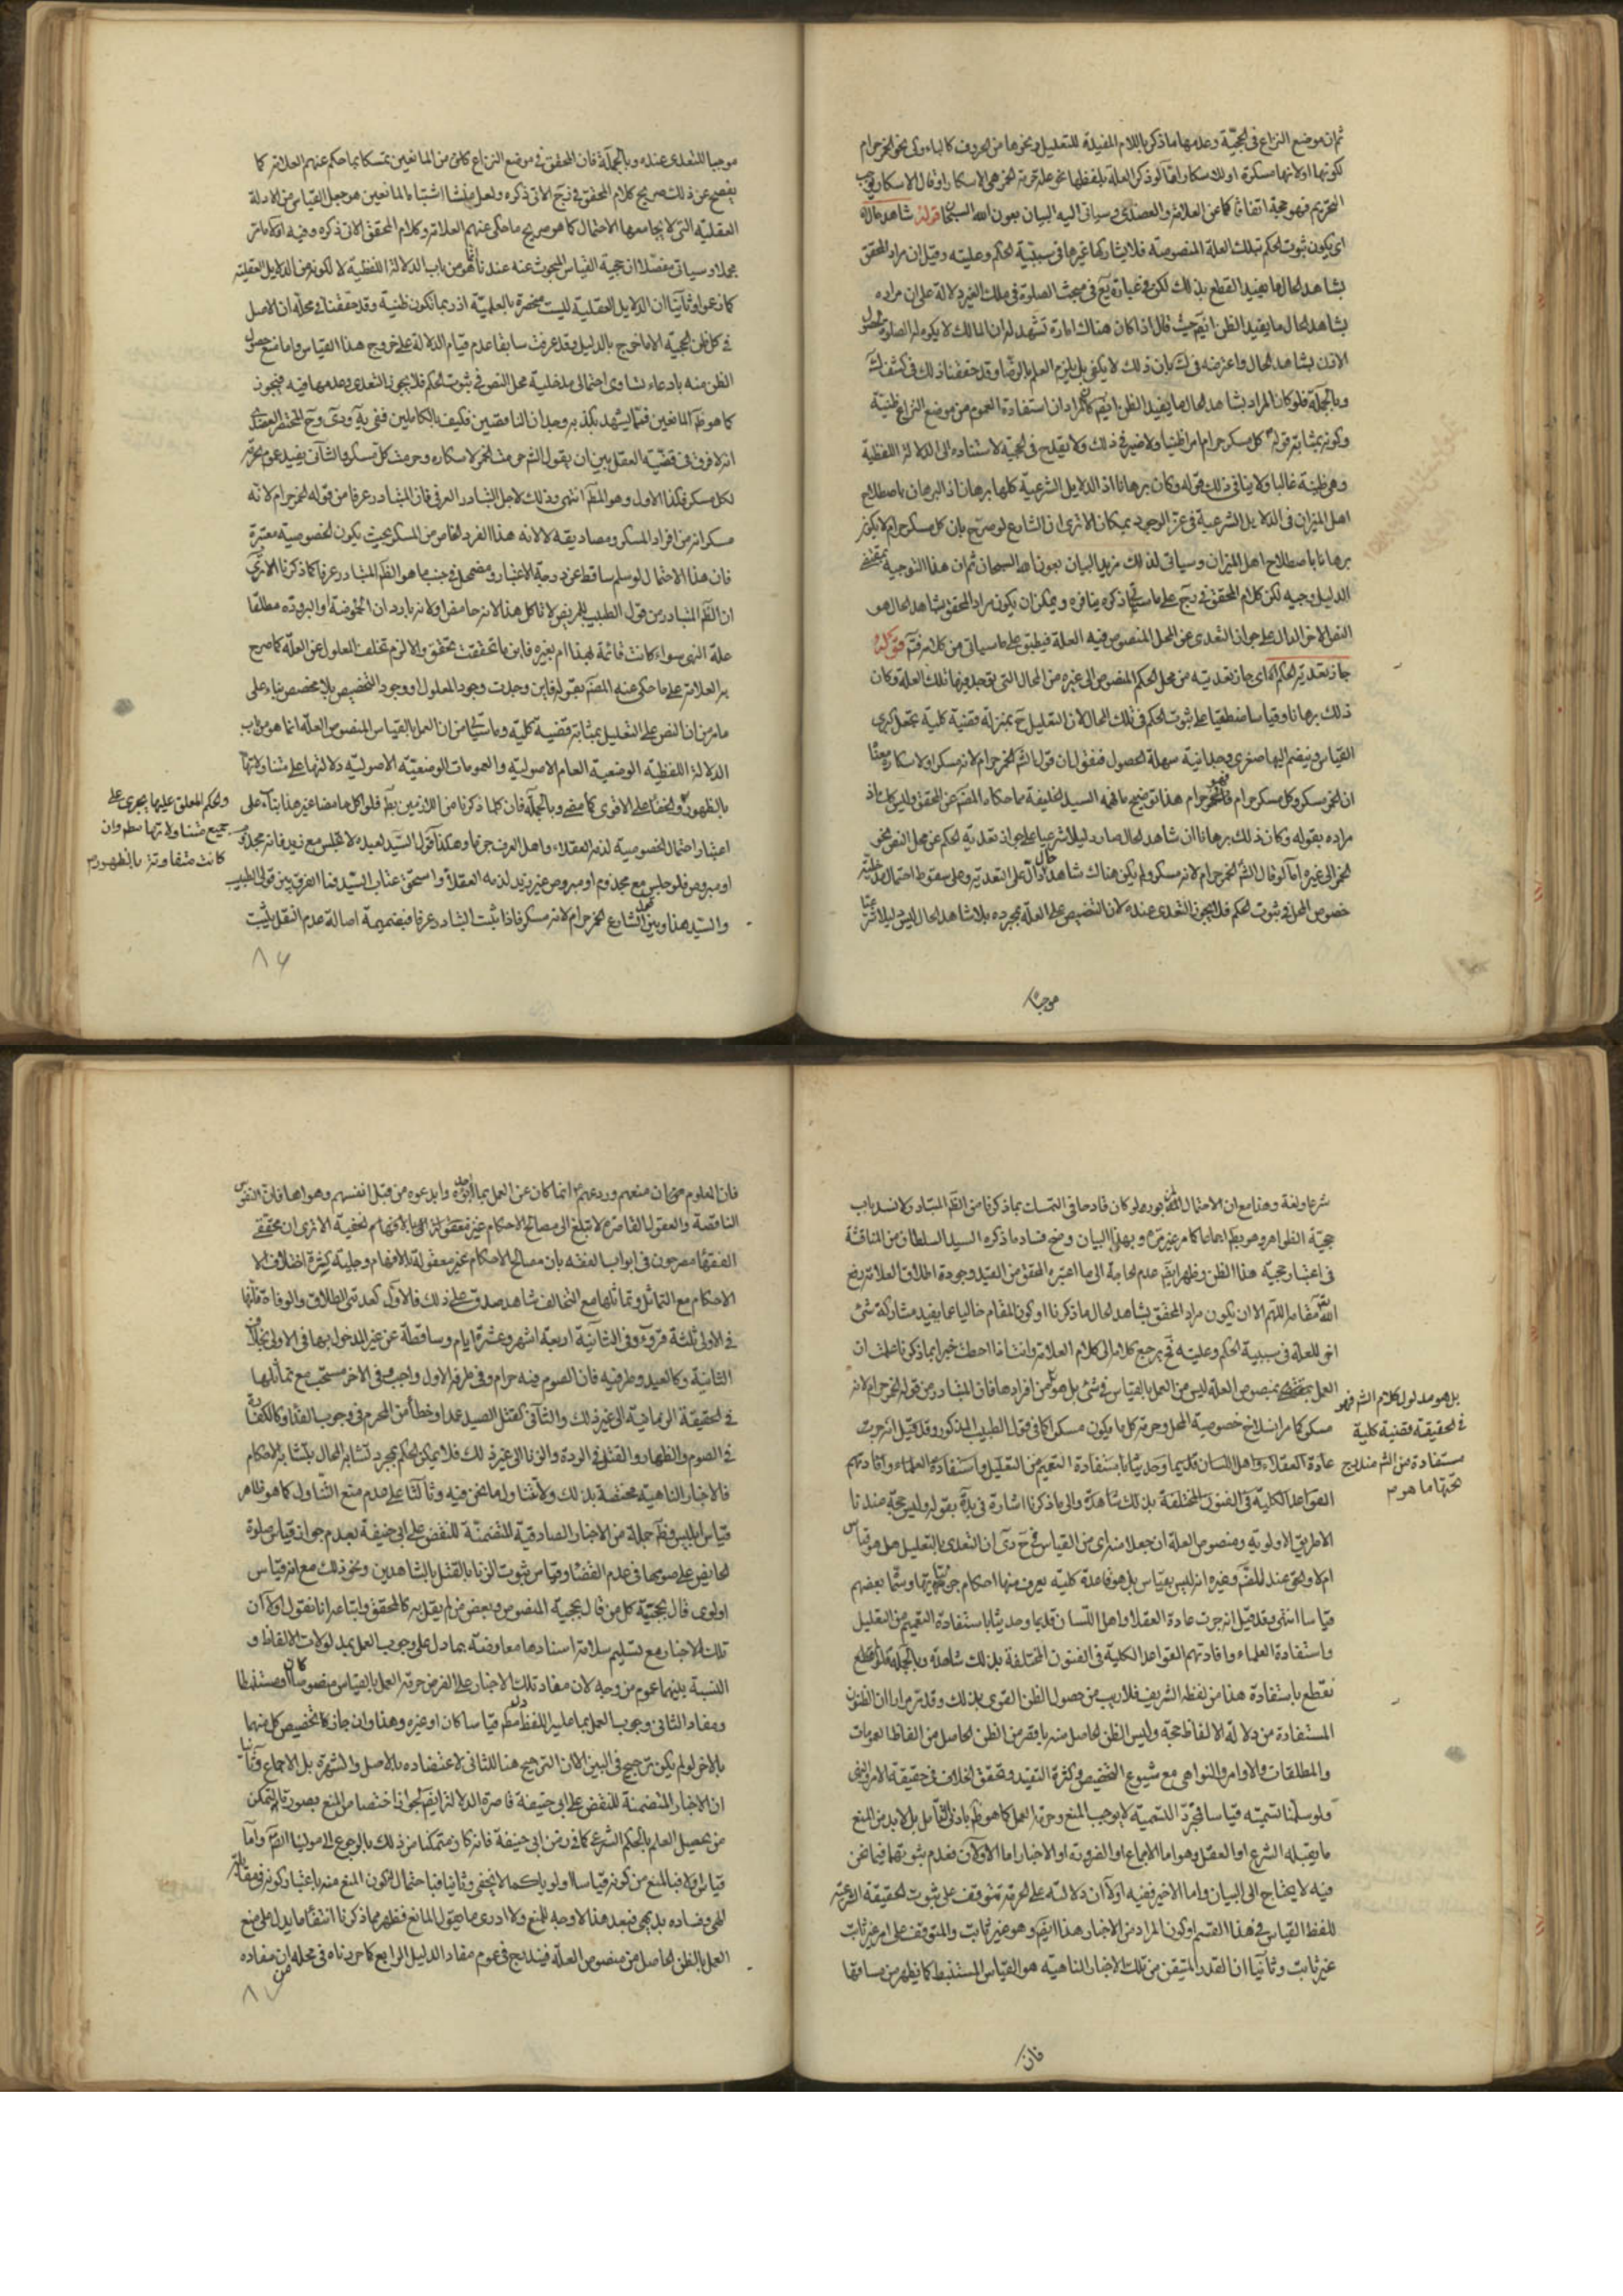 ثم ان موضع النزاع في الحجية وعدمها ما ذكر باللام المفيدة للتعليل ونحوها من الحروف كالباء وكي نحو الخمر حرام
لكونها او لانها مسكرة او للاسكار واما لو ذكر العلة بلفظها نحو علة حرمة الخمر هي الاسكار او قال الاسكار
التحريم فهو حجة اتفاقا كما عن العلامة والعضدي وسياتي اليه البيان بعون الله السبحان قوله شاهد حال
اي يكون ثبوت الحكم بتلك العلة المنصوصة فلا يشاركها غيرها في سببية الحكم وعليته وقيل ان مراد المحقق
بشاهد الحال ما يفيد القطع بذلك لكن في عبارة يع في مبحث الصلوة في ملك الغير دلالة على ان مراده
بشاهد الحال ما يفيد الظن ايضا حيث قال اذا كان هناك امارة تشهد له ان المالك لا يكره له الصلوة
الاذن بشاهد الحال واعترضه في ك بان ذلك لا يكفي بل يلزم العلم بالرضا وقد حققنا ذلك في كشف
وبالجملة فلو كان المراد بشاهد الحال ما يفيد الظن ايضا كان المراد ان استفادة العموم من موضع النزاع ظنية
وكونه بمثابة قوله كل مسكر حرام امرا ظنيا ولا ضير في ذلك ولا يقدح في الحجية لاستناده الى الدلالة اللفظية
وهي ظنية غالبا ولا ينافي ذلك قوله وكان برهانا اذ الدلايل الشرعية كلها برهانا اذ البرهان باصطلاح
اهل الميزان في الدلايل الشرعية في عز الوجود بمكان الا ترى ان الشارع لو صرح بان كل مسكر حرام لا يكون
برهانا باصطلاح اهل الميزان وسياتي لذلك مزيد البيان بعون الله السبحان ثم ان هذا التوجيه
الدليل وجيه لكن كلام المحقق في يج على ما سياتي ذكره ينافره ويمكن ان يكون مراد المحقق بشاهد الحال هو
النص الاخر الدال على جواز التعدي عن المحل المنصوص فيه العلة فيطبق على ما سياتي من كلامه فتم قوله
جاز تعدية الحكم اه اي جاز تعديته من محل الحكم المنصوص الى غيره من المحال التي يوجد فيها تلك العلة وكان
ذلك برهانا وقياسا منطقيا على ثبوت الحكم في تلك المحال لان التعليل ح بمنزلة قضية كلية تجعل كبرى
القياس ويضم اليها صغرى وجدانية سهلة الحصول فنقول ان قول الشم الخمر حرام لانه مسكر او لاسكاره معناه
ان الخمر مسكر وكل مسكر حرام فالخمر حرام هذا توضيح ما فهمه السيد الخليفة مما حكاه المصم عن المحقق وليس كذلك اذ
مراده بقوله وكان ذلك برهانا ان شاهد الحال صار دليلا شرعيا على جواز تعدية الحكم عن محل النص نحو
الخمر الى غيره اما لو قال الشم الخمر حرام لانه مسكر ولم يكن هناك شاهد حال دال على التعدية وعلى سقوط احتمال مدخلية
خصوص المحل في ثبوت الحكم فلا يجوز التعدي عنده لان التنصيص على العلة بمجرده بلا شاهد الحال ليس دليلا شرعيا
موجبا
موجبا للتعدي عنده وبالجملة فان المحقق في موضع النزاع كان من المانعين تمسكا بما حكم عنهم العلامة كما
يفصح عن ذلك صريح كلام المحقق في يج الاتي ذكره ولعل منشأ اشتباه المانعين هو جعل القياس من الادلة
العقلية التي لا يجامعها الاحتمال كما هو صريح ما حكى عنهم العلامة وكلام المحقق الاتي ذكره وفيه اولا ما مر
مجملا وسياتي مفصلا ان حجية القياس المبحوث عنه عندنا انما هو من باب الدلالة اللفظية لا لكونه من الدلايل العقلية
كما زعموا وثانيا ان الدلايل العقلية ليست منحصرة بالعلمية اذ ربما تكون ظنية وقد حققنا في محله ان الاصل
في كل ظن الحجية الا ما خرج بالدليل وقد عرفت سابقا عدم قيام الدلالة على خروج هذا القياس واما منع حصول
الظن منه بادعاء تساوي احتمالي مدخلية محل النص في ثبوت الحكم فلا يجوز التعدي وعدمها فيه فيجوز
كما هو ظ المانعين فمما يشهد بكذبه وجدان الناقصين فكيف بالكاملين ففي
انه لا فرق في قضية العقل بين ان يقول الشم حرمت الخمر لاسكاره وحرمت كل مسكر والثاني يفيد عموم
لكل مسكر فكذا الاول وهو المط انتهى وذلك لاجل التبادر العرفي فان المتبادر عرفا من قوله الخمر حرام لانه
مسكر انه من افراد المسكر ومصاديقه لا لانه هذا الفرد الخاص من المسكر بحيث يكون الخصوصية معتبرة
فان هذا الاحتمال لو سلم ساقط عن درجة الاعتبار ومضمحل في جنب ما هو الظ المتبادر عرفا كما ذكرنا الا ترى
ان الظ المتبادر من قول الطبيب للمريض لا تاكل هذا لانه حامض او لانه بارد ان الحموضة او البرودة مطلقا
علة النهي سواء كانت قائمة بهذا ام بغيره فاين ما تحققت تحقق والا لزم تخلف المعلول عن العلة كما صرح
به العلامة على ما حكى عنه المصم بقوله فاين وجدت وجود المعلول او وجود التخصيص بلا مخصص بناء على
ما مر من ان النص على التعليل بمثابة قضية كلية وما سياتي من ان العمل بالقياس المنصوص العلة انما هو من باب
الدلالة اللفظية الوضعية العام الاصولية والعمومات الوضعية الاصولية دلالتها على متناولاتها
بالظهور والخفاء على الاقوى كما مضى وبالجملة فان كلما ذكرنا من اللازمين بط فلو اكل حامضا غير هذا بناء على
اعتبار احتمال الخصوصية لذمه العقلاء واهل العرف جزما وهكذا قول السيد لعبده لا تجلس مع زيد فانه مجذوم
او مبروص فلو جلس مع مجذوم او مبروص غير زيد لذمه العقلاء واستحق عتاب السيد فما الفرق بين قول الطبيب
والسيد هذا وبين قول الشارع الخمر حرام لانه مسكر فاذا ثبت التبادر عرفا فبضميمة اصالة عدم النقل يثبت
والحكم المعلق عليها يجري على
جميع متناولاتها مطم وان
كانت متفاوتة بالظهور م
٨٦
شرعا ولغة وهذا مع ان الاحتمال المزبور لو كان قادحا في التمسك بما ذكرنا من الظ المتبادر لانسد باب
حجية الظواهر وهو بط اجماعا كما مر غير مرة وبهذا البيان وضح فساد ما ذكره السيد السلطان من المناقشة
في اعتبار حجية هذا الظن وظهر ايضا عدم الحاجة الى ما اعتبره المحقق من القيد وجودة اطلاق العلامة رفع
الله مقامه اللهم الا ان يكون مراد المحقق بشاهد الحال ما ذكرنا او كون المقام خاليا عما يفيد مشاركة شئ
اخر للعلة في سببية الحكم وعليته فح يرجع كلامه الى كلام العلامة واذا احطت خبرا بما ذكرنا علمت ان
العمل بمنصوص العلة ليس من العمل بالقياس في شئ بل هو من افرادها فان المتبادر من قوله الخمر حرام لانه
مسكر كما مر انسلاخ خصوصية المحل وحرمة كل ما يكون مسكرا كما في قول الطبيب المذكور وقد قيل انه جرت
عادة العقلاء واهل اللسان قديما وحديثا باستفادة التعميم من التعليل واستفادة العلماء وافادتهم
القواعد الكلية في الفنون المختلفة بذلك شاهدة والى ما ذكرنا اشارة في بقوله وليس حجة عندنا
الا طريق الاولوية ومنصوص العلة ان جعلا منه اي من القياس في ح دى ان التعدي بالتعليل هل هو قياس
ام لا والحق عند المصم وغيره انه ليس بقياس بل هو قاعدة كلية يعرف منها احكام جزئياتها وسما بعضهم
قياسا انتهى وقد قيل انه جرت عادة العقلا واهل اللسان قديما وحديثا باستفادة التعميم من التعليل
واستفادة العلماء وافادتهم القواعد الكلية في الفنون المختلفة بذلك شاهدة وبالجملة فلو لم نقطع
نقطع باستفادة هذا من لفظه الشريف فلا ريب من حصول الظن القوي بذلك وقد مر مرارا ان الظنون
المستفادة من دلالة الالفاظ حجة وليس الظن الحاصل منه باقصر من الظن الحاصل من الفاظ العمومات
والمطلقات والاوامر والنواهي مع شيوع التخصيص وكثرة التقييد وتحقق الخلاف في حقيقة الامر والنهي
ولو سلمنا تسميته قياسا فمجرد التسمية لا يوجب المنع وحرمة العمل كما هو ظ بادنى التامل بل لا بد من المنع
ما يقبله الشرع او العقل وهو اما الاجماع او الضرورة او الاخبار اما الاولان فعدم ثبوتهما فيما نحن
فيه لا يحتاج الى البيان واما الاخير ففيه اولا ان دلالته على الحرمة تتوقف على ثبوت الحقيقة الشرعية
للفظ القياس في هذا القسم او كون المراد من الاخبار هذا ايضا وهو غير ثابت والمتوقف على امر غير ثابت
غير ثابت وثانيا ان القدر المتيقن من تلك الاخبار الناهية هو القياس المستنبط كما يظهر من مساقها
بل هو مدلول كلام الشم فهو
في الحقيقة قضية كلية
مستفادة من الشم مندرج
تحتها ما هو م
فان
فان المعلوم منها ان منعهم وردعهم انما كان عن العمل بما ابدعوه من قبل انفسهم وهواها فان النفوس
الناقصة والعقول القاصرة لا تبلغ الى مصالح الاحكام الخفية الا ترى ان محققي
الفقهاء مصرحون في ابواب الفقه بان مصالح الاحكام غير معقولة للافهام وجلية كثرة اختلاف
الاحكام مع التماثل وتماثلها مع التخالف شاهد صدق على ذلك فالاول كعدتي الطلاق والوفاة فانها
في الاولى ثلثة قروء وفي الثانية اربعة اشهر وعشرة ايام وساقطة عن غير المدخول بها في الاولى بخلاف
الثانية وكالعيد وطرفيه فان الصوم فيه حرام وفي طرفه الاول واجب وفي الاخر مستحب مع تماثلها
في الحقيقة الزمانية الى غير ذلك والثاني كقتل الصيد عمدا وخطأ من المحرم في وجوب الفداء وكالكفارة
في الصوم والظهار والقتل في الردة والزنا الى غير ذلك فلا يمكن الحكم بمجرد تشابه المحال بتشابه الاحكام
فالاخبار الناهية مختصة بذلك ولا تتناول ما نحن فيه وثالثا على عدم منع التناول كما هو ظاهر
قياس ابليس وظ جملة من الاخبار الصادقية المتضمنة للنقض على ابي حنيفة بعدم جواز قياس صلوة
الحايض على صومها في عدم القضاء وقياس ثبوت الزنا بالقتل بالشاهدين ونحو ذلك مع انه قياس
اولوي قال بحجيته كل من قال بحجية المنصوص وبعض من لم يقل به كالمحقق واتباعه انا نقول اولا ان
تلك الاخبار مع تسليم سلامة اسنادها معارضة بما دل على وجوب العمل بمدلولات الالفاظ و
النسبة بينهما عموم من وجه لان مفاد تلك الاخبار على الفرض حرمة العمل بالقياس منصوصا كان او مستنبطا
ومفاد الثاني وجوب العمل بما دل عليه اللفظ مطم قياسا كان او غيره وهذا وان جاز كا تخصيص كل منهما
بالاخر لو لم يكن ترجيح في البين الا ان الترجيح هنا للثاني لاعتضاده بالاصل والشهرة بل الاجماع وثانيا
ان الاخبار المتضمنة للنقض على ابي حنيفة قاصرة الدلالة ايضا لجواز اختصاص المنع بصورة التمكن
من تحصيل العلم بالحكم الشرعي كما في زمن ابي حنيفة فانه كان متمكنا من ذلك بالرجوع الى مولينا الصم واما
قياس اولا فبالمنع من كونه قياسا اولويا كما لا يخفى وثانيا فباحتمال كون المنع منه باعتبار كونه في مقابلة
النهي وفساده بديهي فبعد هذا لا وجه للمنع ولا ادري ما يقول المانع فظهر مما ذكرنا انتفاء ما يدل على منع
العمل بالظن الحاصل من منصوص العلة فيندرج في عموم مفاد الدليل الرابع كما حررناه في محله من ان مفاده
٨٧